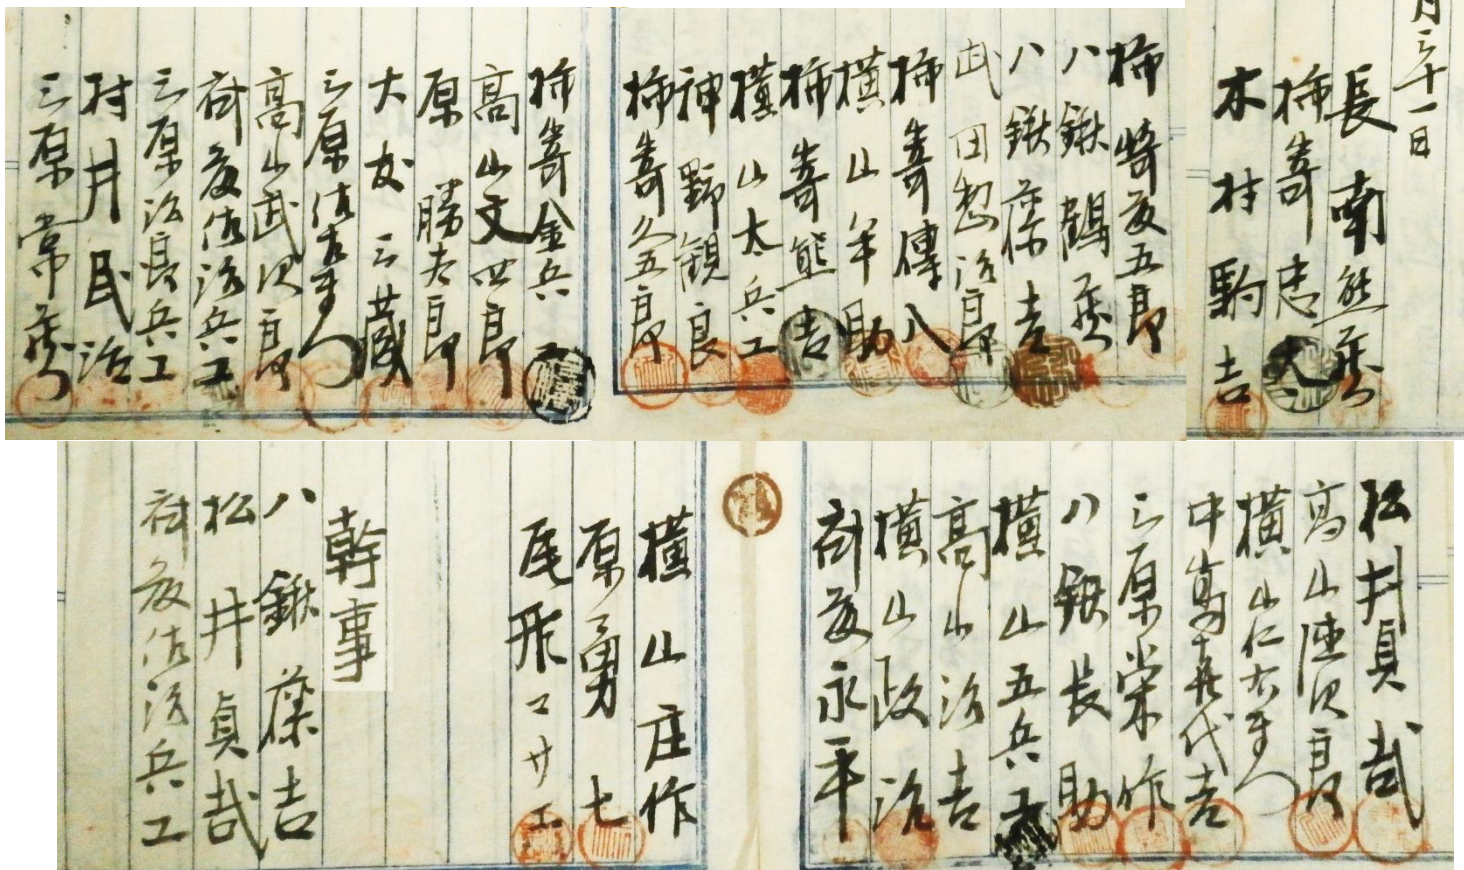 月三十一日
長南熊蔵
柿嵜忠太
木村駒吉
柿崎友五郎
八鍬鶴蔵
八鍬藤吉
武田惣治郎
柿嵜傳八
横山年助
柿嵜熊吉
横山太兵工
神野観良
柿嵜久五郎
柿嵜金兵工
高山文四郎
原勝太郎
大友三蔵
三原佐吉
高山武次郎
村友佐治兵工
三原治良兵工
村井民治
三原常蔵
松井貞哉
高山陸次郎
横山仁右
中嶌十代吉
三原栄作
八鍬長助
横山五兵工
高山治吉
横山政治
村友永平
横山庄作
原勇七
尾形マサエ
幹事
八鍬藤吉
松井貞哉
村友佐治兵工